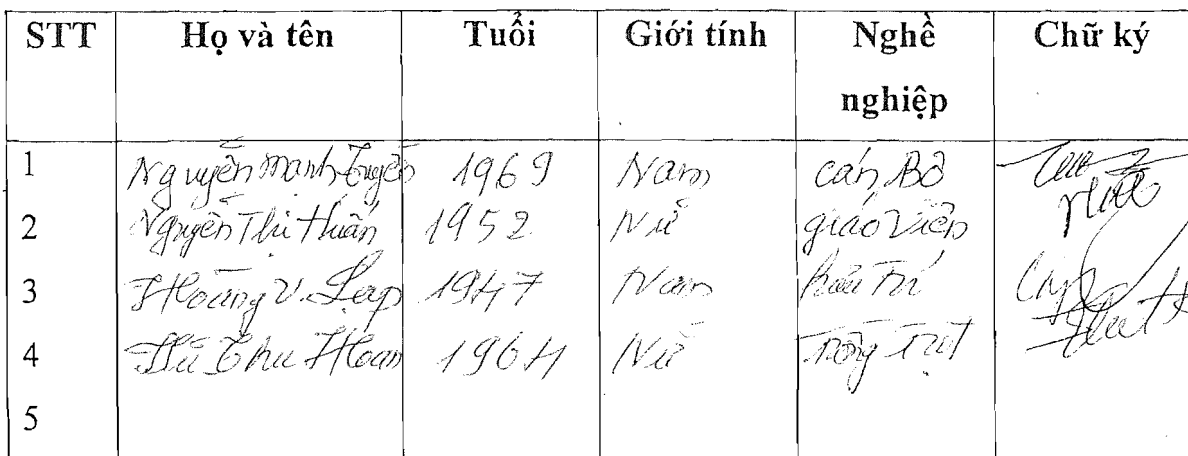 STT Họ và tên Tuổi Giới tính Nghề nghiệp Chữ ký
1 Nguyễn Mạnh 1969 Nam cán Bộ
2 Nguyễn Thị Huấn 1952 Nữ giáo viên
3 Hoàng V. Lập 1947 Nam hưu Trí
4 Thu Hoan 1964 Nữ Trồng Trọt
5